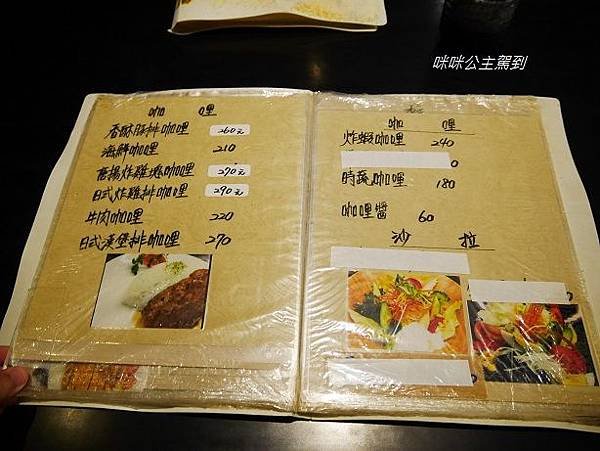 咪咪公主駕到
咖 哩
香酥豚排咖哩 260元
海鮮咖哩 210
唐揚炸雞塊咖哩 270元
日式炸雞排咖哩 290元
牛肉咖哩 220
日式漢堡排咖哩 270
咖 哩
炸蝦咖哩 240
0
時蔬咖哩 180
咖哩醬 60
沙 拉